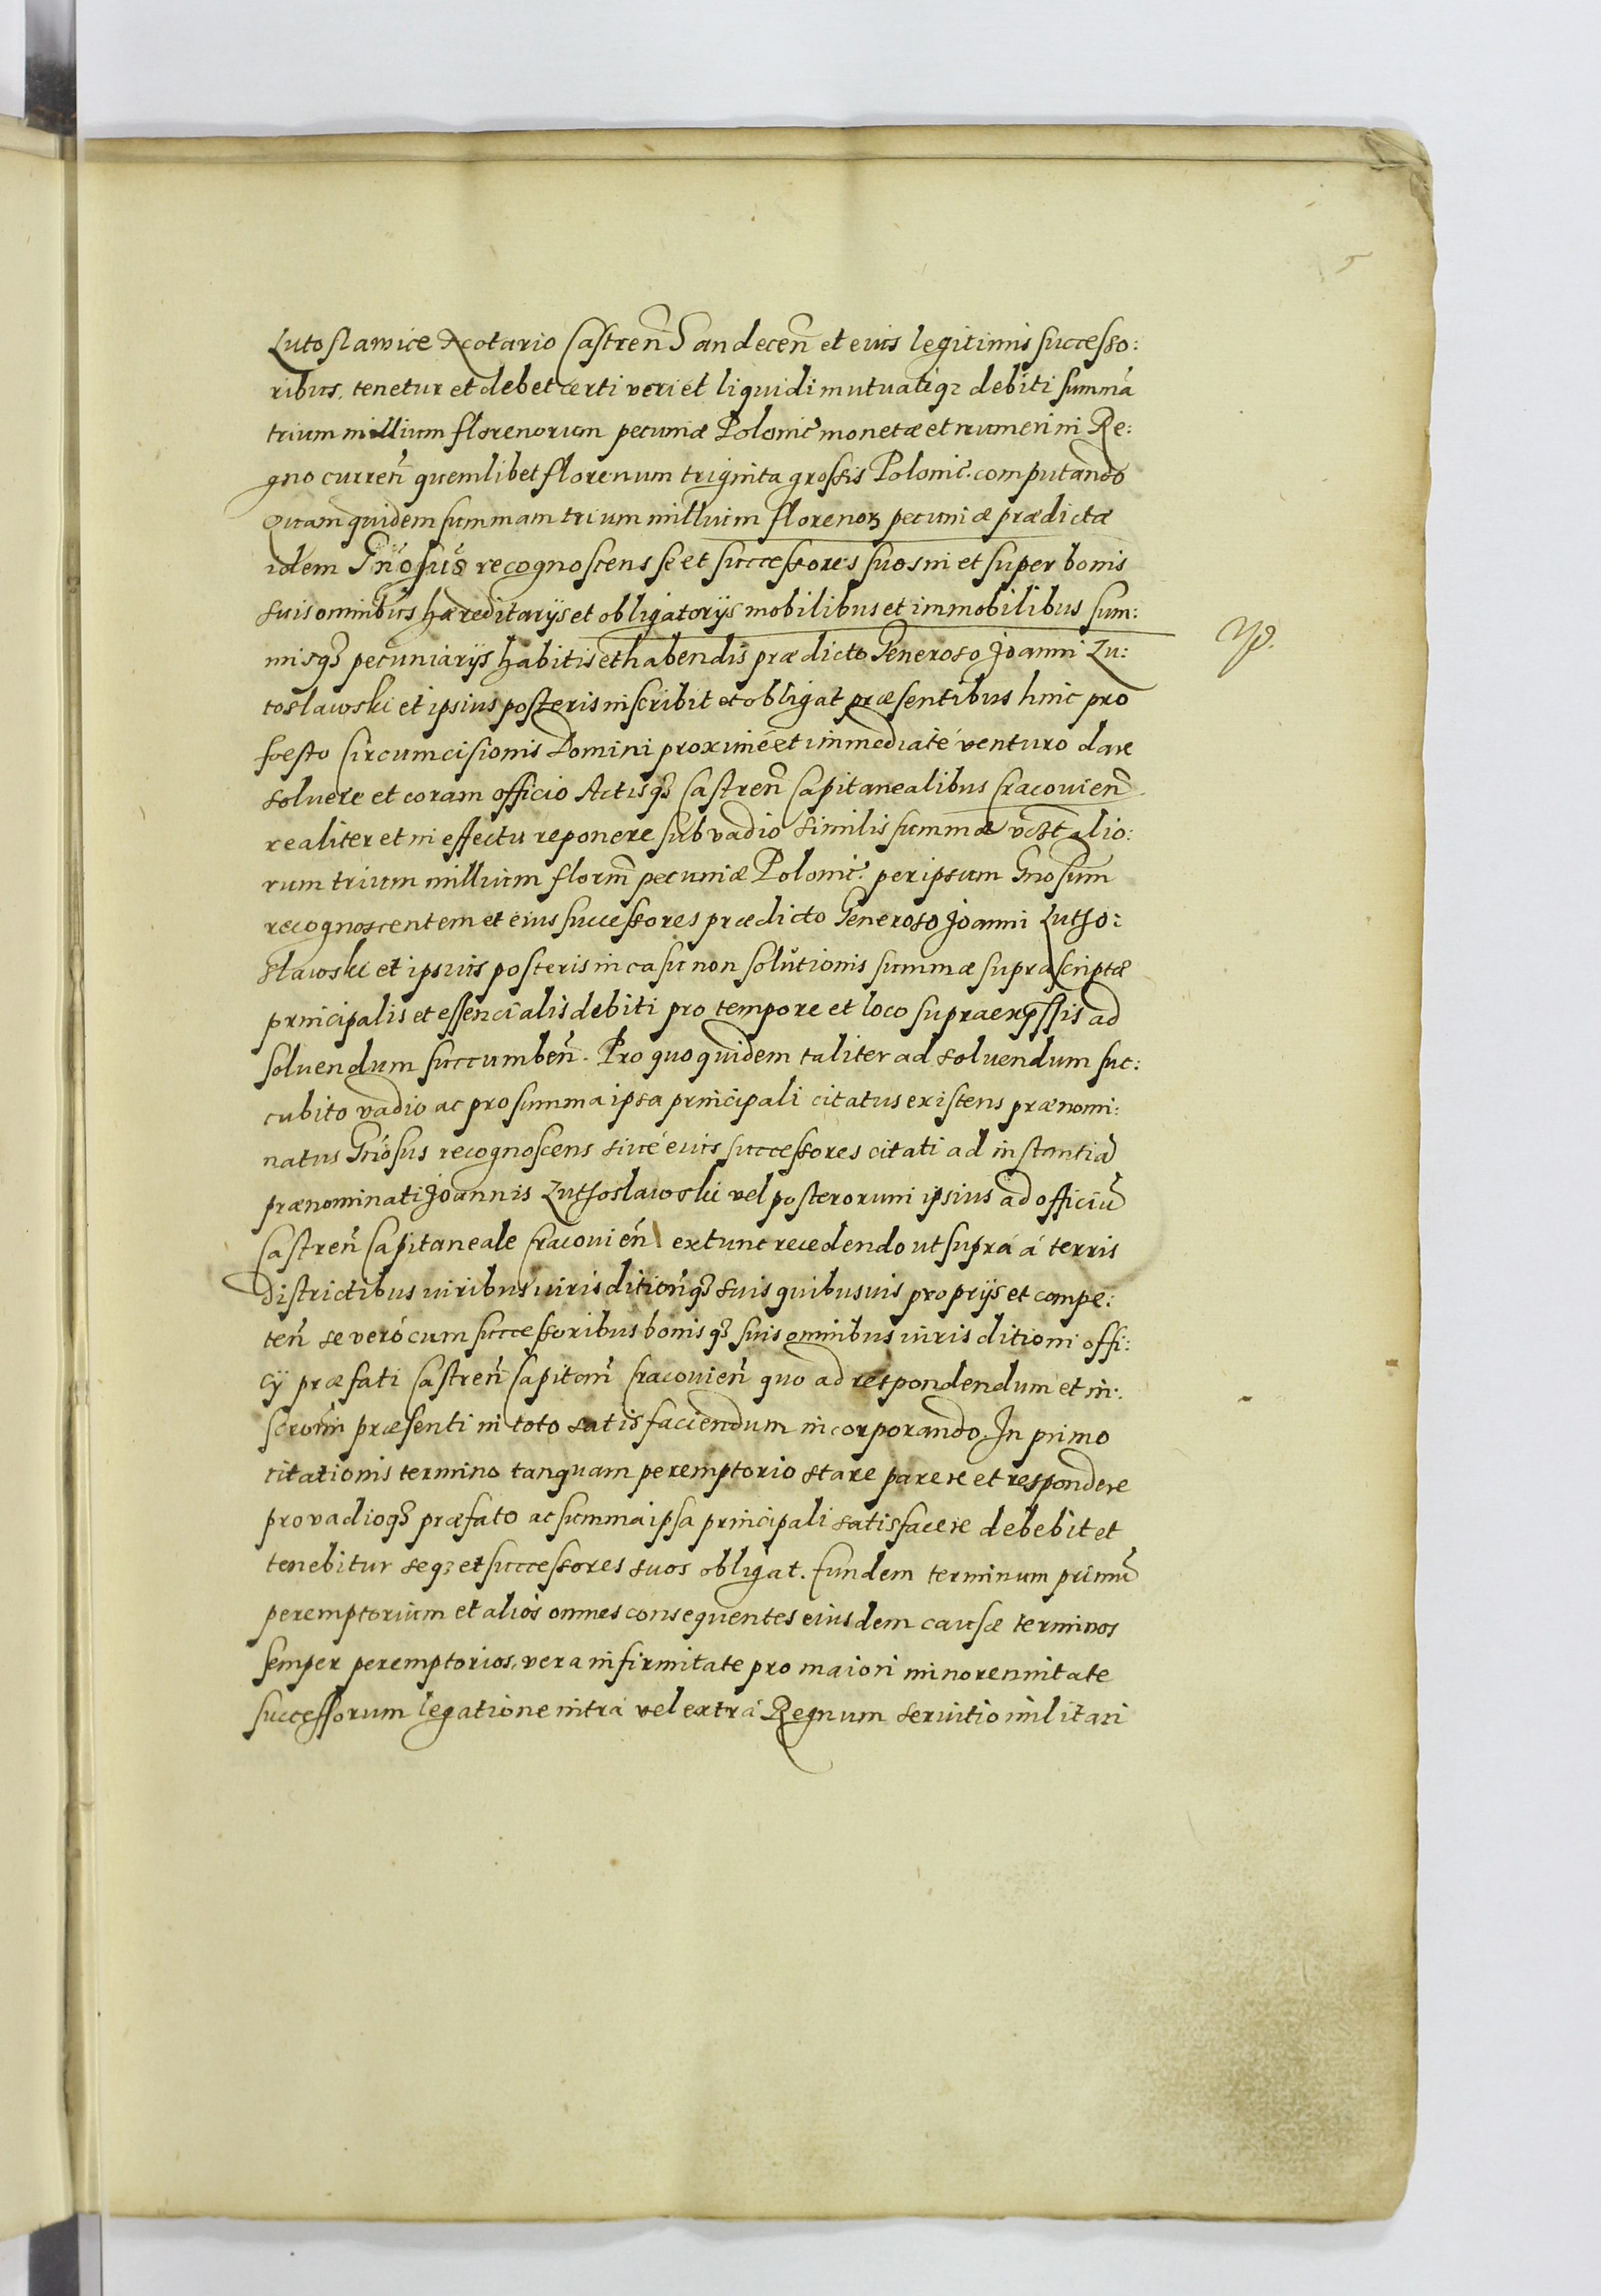 5
Lutoslawice Notario Castren̄ Sandecen̄ et eius legitimis successo:
ribus, tenetur et debet certi veri et liquidi mutuatiq₃ debiti summā
trium millium florenorum pecuniæ Polonic̄ monetæ et numeri in Re:
gno curren̄ quemlibet florenum triginta grossis Polonic̄. computando
Quam quidem summam trium millium florenoꝝ pecuniæ prædictæ
idem Gn̄osus recognoscens se et successores suos in et super bonis
suis omnibus hæreditarijs et obligatorijs mobilibus et immobilibus sum:
misq₃ pecuniarijs habitis et habendis prædicto Generoso Joanni Lu:
toslawski et ipsius posteris inscribit et obligat præsentibus hinc pro
foesto Circumcisionis Domini proximé et immediaté venturo dare
soluere et coram officio Actisq₃ Castren̄ Capitanealibus Cracouien̄
realiter et in effectu reponere sub vadio similis summæ vz̄t alio:
rum trium millium florm̄ pecuniæ Polonic̄. per ipsum Gnosum̄
recognoscentem et eius successores prædicto Generoso Joanni Lutho:
slawski et ipsius posteris in casu non solutionis summæ suprascriptæ
principalis et essencialis debiti pro tempore et loco supraexp̄ssis ad
soluendum succumben̄. Pro quo quidem taliter ad soluendum suc:
cubito vadio ac pro summa ipsa principali citatus existens prænomi:
natus Gn̄osus recognoscens siué eius successores citati ad instantiā
prænominati Joannis Luthoslawski vel posterorum ipsius ad officiū
Castren̄ Capitaneale Cracouien̄ extunc recedendo ut suprá á terris
Districtibus iuribus iurisdition̄q₃ suis quibusuis proprijs et compe:
ten̄ se veró cum successoribus bonisq₃ suis omnibus iurisditioni offi:
cÿ præfati Castren̄ Capitan̄ Cracouien̄ quo ad respondendum et in:
scron̄i præsenti in toto satisfaciendum incorporando. In primo
citationis termino tanquam peremptorio stare parere et respondere
pro vadioq₃ præfato ac summa ipsa principali satisfacere debebit et
tenebitur seq₃ et successores suos obligat. Eundem terminum primū
peremptorium et alios omnes consequentes eiusdem causæ terminos
semper peremptorios, vera infirmitate pro maiori minorennitate
successorum legatione intrá vel extrá Regnum seruitio militari